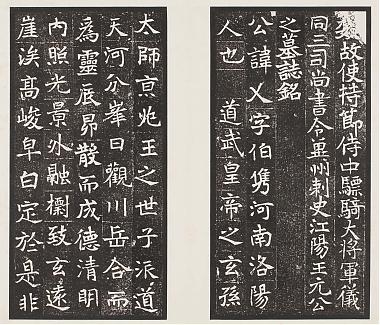 魏故使持節侍中驃騎大將軍儀
同三司尚書令冀州刺史江陽王元公
之墓誌銘
公諱乂字伯雋河南洛陽
人也　道武皇帝之玄孫
太師京兆王之世子派道
天河分峯日觀川岳合而
為靈辰昴散而成德清明
內照光景外融標致玄遠
崖涘高峻皁白定於是非